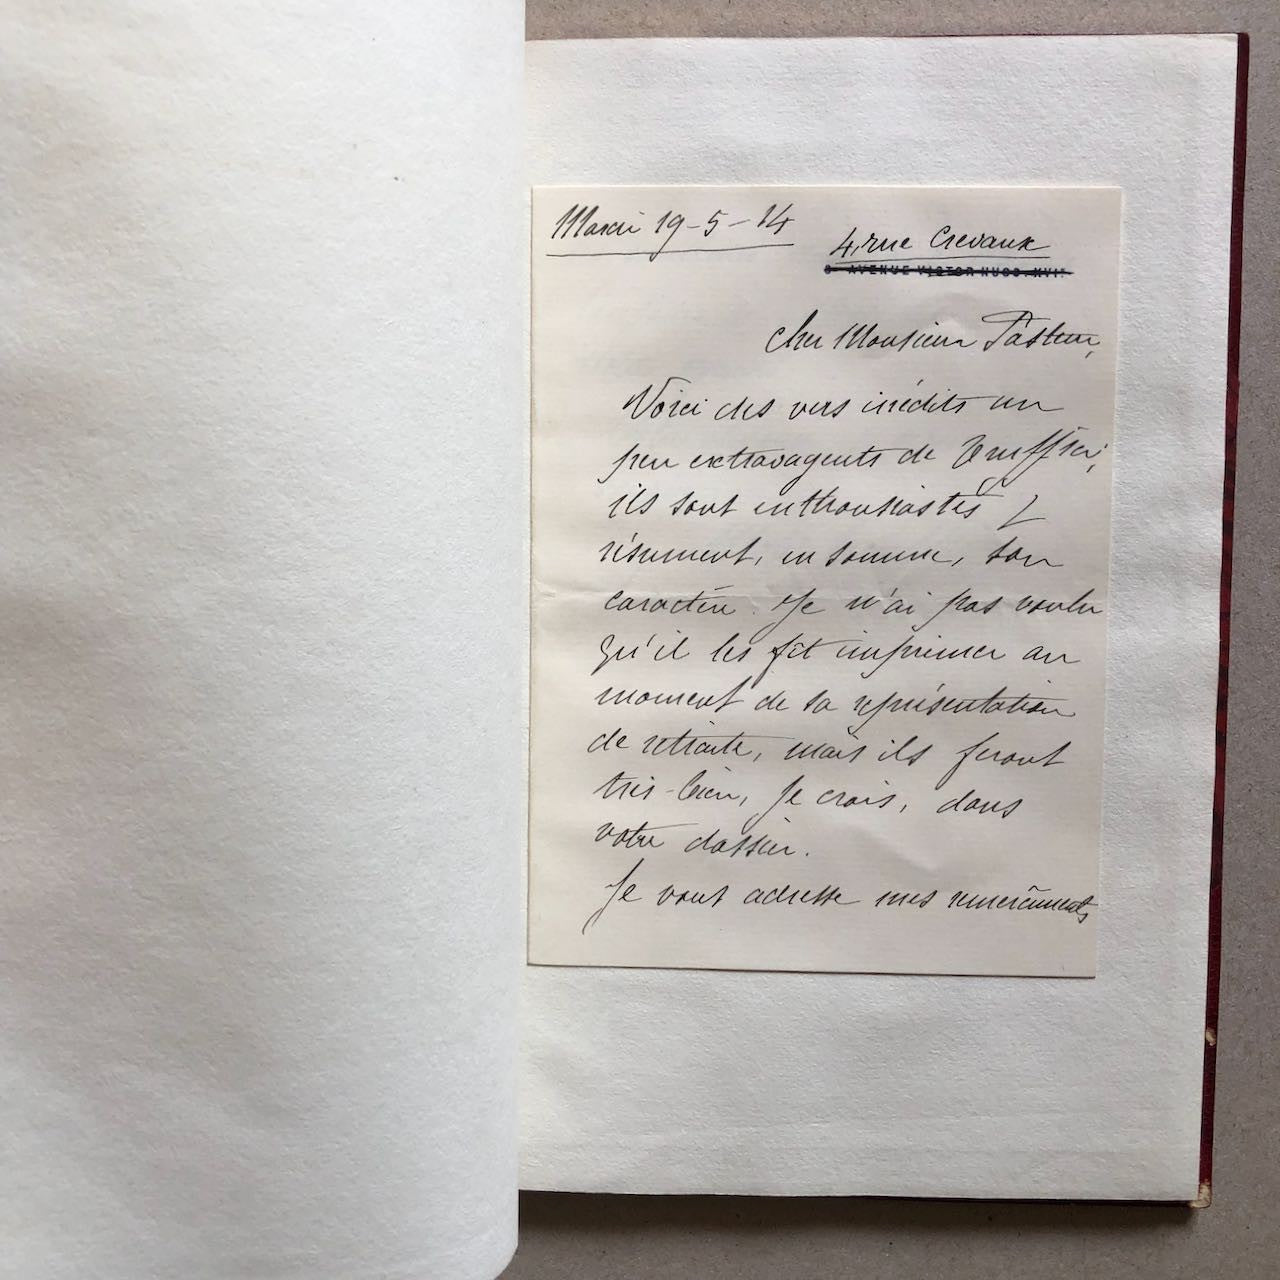 Mardi 19-5-14
4, rue Crevaux
AVENUE VICTOR HUGO. XVIe
Cher Monsieur Pasteur,
Voici des vers inédits un
peu extravagents de Truffier;
ils sont enthousiastes &
résument, en somme, son
caractère. Je n'ai pas voulu
qu'il les fît imprimer au
moment de sa représentation
de retraite, mais ils feront
très-bien, je crois, dans
votre dossier.
Je vous adresse mes remercîments